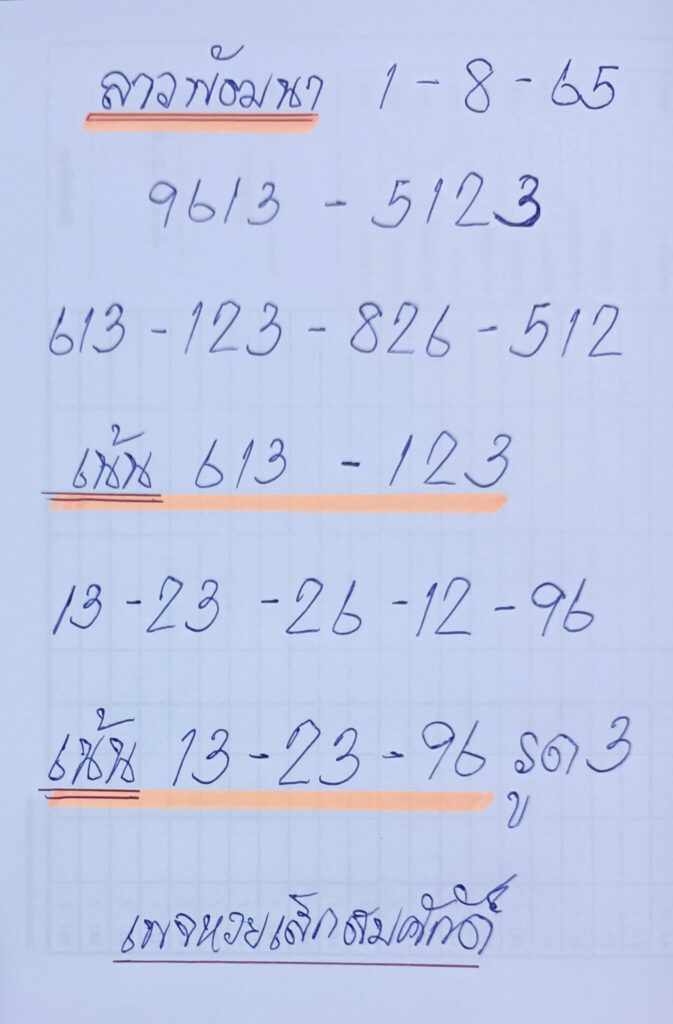 ลาวพัฒนา 1-8-65
9613 - 5123
613-123-826-512
เน้น 613 - 123
13-23-26-12-96
เน้น 13-23-96 รูด 3
เพจหวยเล็กสมศักดิ์